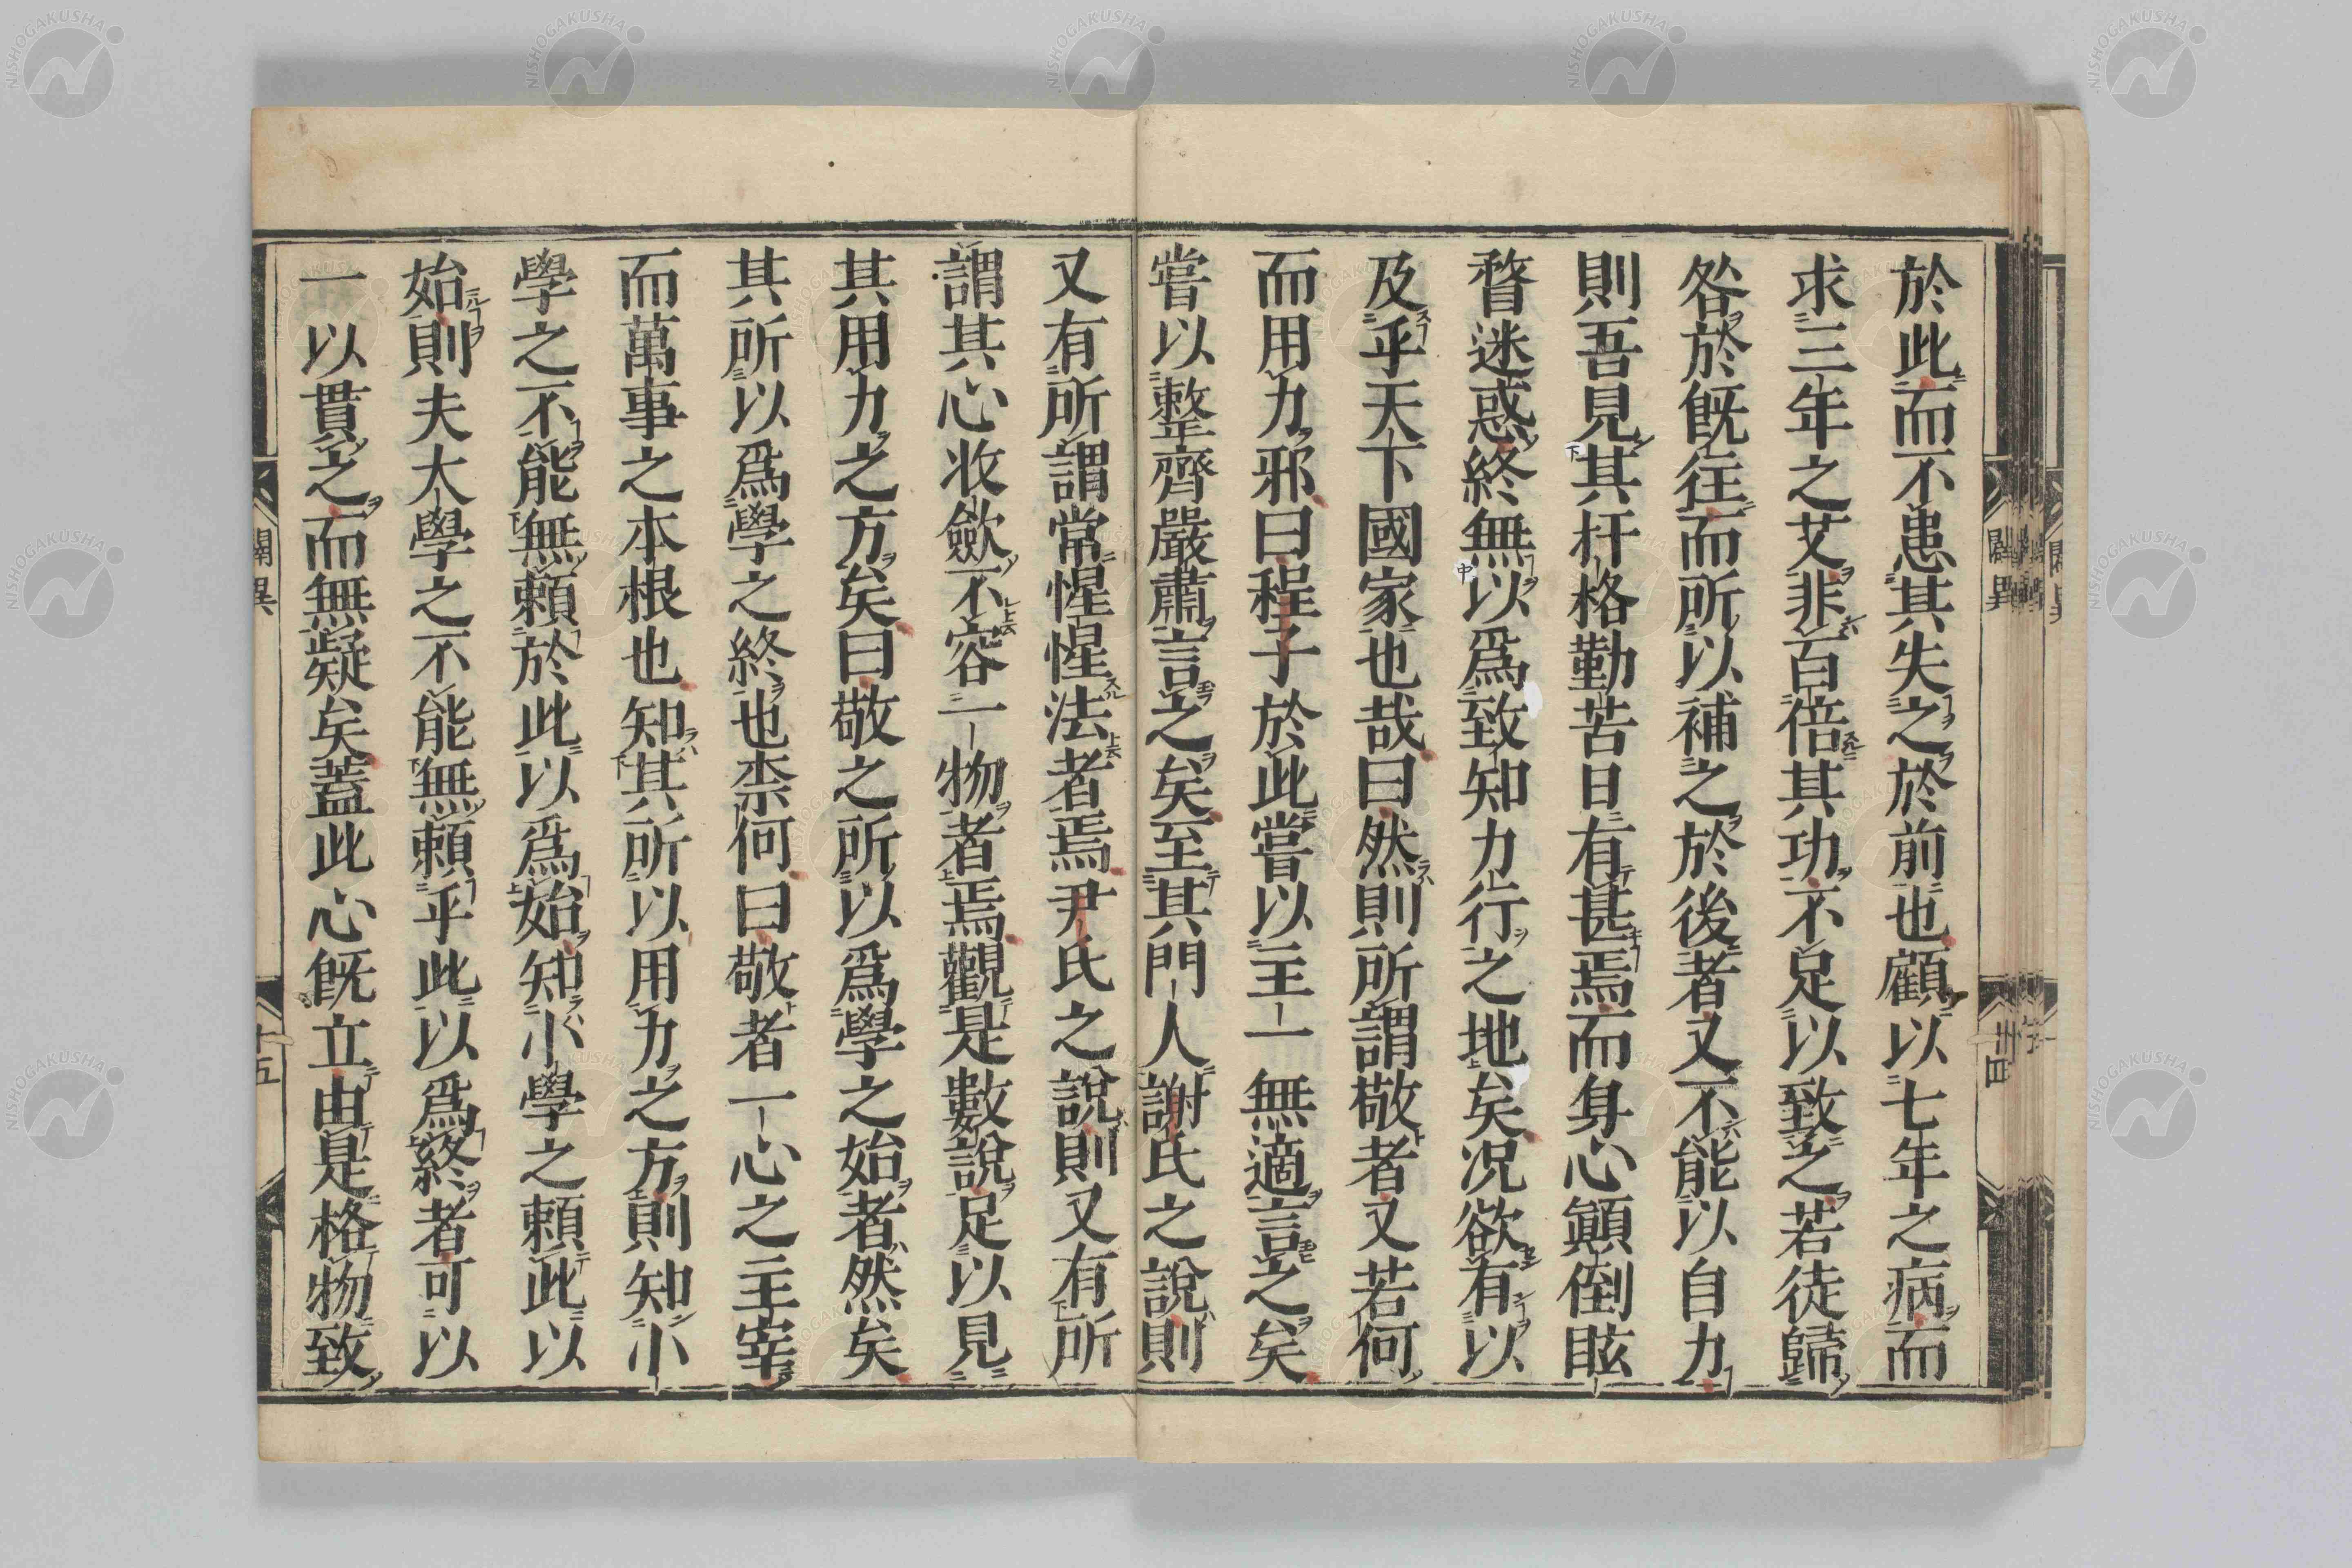 於此而不患其失之於前也顧以七年之病而
求三年之艾非百倍其功不足以致之若徒歸
咎於旣往而所以補之於後者又不能以自力
則吾見其扞格勤苦日有甚焉而身心顚倒眩
瞀迷惑終無以爲致知力行之地矣况欲有以
及乎天下國家也哉曰然則所謂敬者又若何
而用力邪曰程子於此嘗以主一無適言之矣
嘗以整齊嚴肅言之矣至其門人謝氏之說則
又有所謂常惺惺法者焉尹氏之說則又有所
謂其心收斂不容一物者焉觀是數說足以見
其用力之方矣曰敬之所以爲學之始者然矣
其所以爲學之終也柰何曰敬者一心之主宰
而萬事之本根也知其所以用力之方則知小
學之不能無頼於此以爲始知小學之頼此以
始則夫大學之不能無頼乎此以爲終者可以
一以貫之而無疑矣蓋此心旣立由是格物致
闢異
十五
闢異
十四
NISHOGAKUSHA